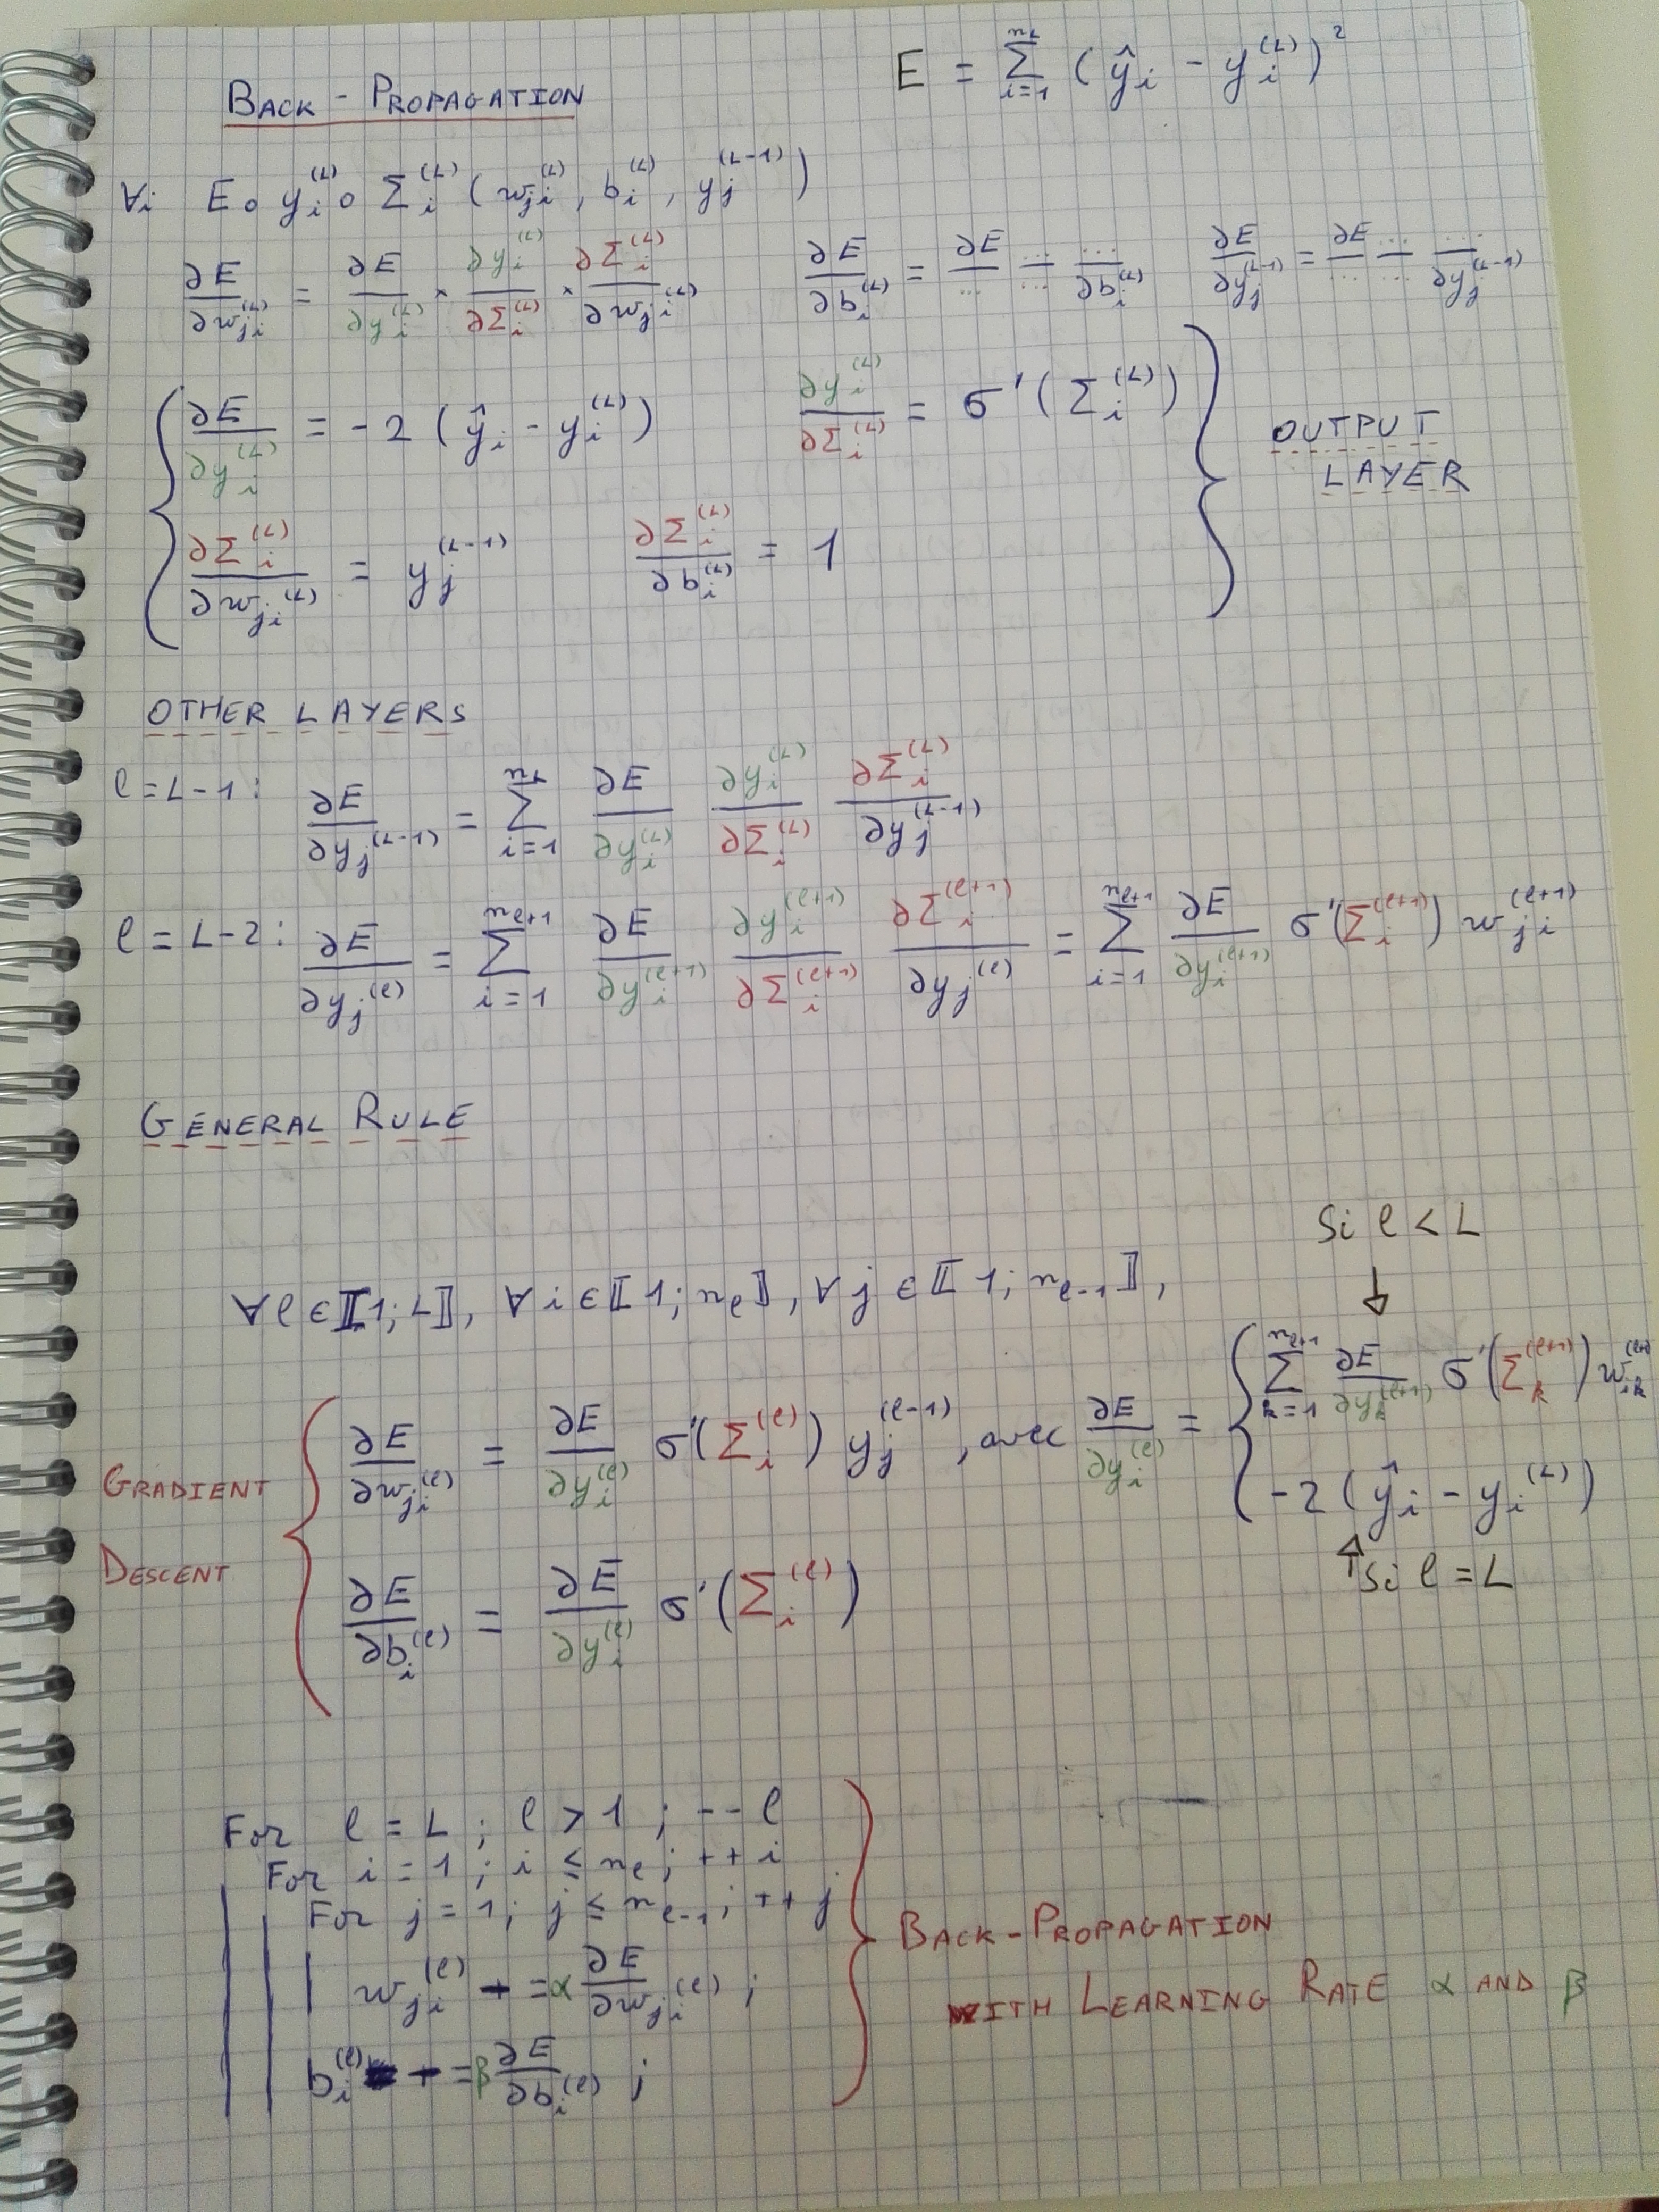 BACK-PROPAGATION
E = \sum_{i=1}^{n_L} (\hat{y}_i - y_i^{(L)})^2
∀i E∘y_i^{(L)}∘Σ_i^{(L)} (w_{ji}^{(L)}, b_i^{(L)}, y_j^{(L-1)})
∂E/∂w_{ji}^{(L)} = ∂E/∂y_i^{(L)} × ∂y_i^{(L)}/∂Σ_i^{(L)} × ∂Σ_i^{(L)}/∂w_{ji}^{(L)} ∂E/∂b_i^{(L)} = ∂E/... .../... .../∂b_i^{(L)} ∂E/∂y_j^{(L-1)} = ∂E/... .../... .../∂y_j^{(L-1)}
∂E/∂y_i^{(L)} = -2 (\hat{y}_i - y_i^{(L)}) ∂y_i^{(L)}/∂Σ_i^{(L)} = σ'(Σ_i^{(L)})
∂Σ_i^{(L)}/∂w_{ji}^{(L)} = y_j^{(L-1)} ∂Σ_i^{(L)}/∂b_i^{(L)} = 1
OUTPUT
LAYER
OTHER LAYERS
ℓ=L-1: ∂E/∂y_j^{(L-1)} = \sum_{i=1}^{n_L} ∂E/∂y_i^{(L)} ∂y_i^{(L)}/∂Σ_i^{(L)} ∂Σ_i^{(L)}/∂y_j^{(L-1)}
ℓ=L-2: ∂E/∂y_j^{(ℓ)} = \sum_{i=1}^{n_{ℓ+1}} ∂E/∂y_i^{(ℓ+1)} ∂y_i^{(ℓ+1)}/∂Σ_i^{(ℓ+1)} ∂Σ_i^{(ℓ+1)}/∂y_j^{(ℓ)} = \sum_{i=1}^{n_{ℓ+1}} ∂E/∂y_i^{(ℓ+1)} σ'(Σ_i^{(ℓ+1)}) w_{ji}^{(ℓ+1)}
GENERAL RULE
∀ℓ∈⟦1;L⟧, ∀i∈⟦1;n_ℓ⟧, ∀j∈⟦1;n_{ℓ-1}⟧,
Si ℓ < L
GRADIENT
DESCENT
∂E/∂w_{ji}^{(ℓ)} = ∂E/∂y_i^{(ℓ)} σ'(Σ_i^{(ℓ)}) y_j^{(ℓ-1)}, avec ∂E/∂y_i^{(ℓ)} = { \sum_{k=1}^{n_{ℓ+1}} ∂E/∂y_k^{(ℓ+1)} σ'(Σ_k^{(ℓ+1)}) w_{ik}^{(ℓ+1)}
-2 (\hat{y}_i - y_i^{(L)})
Si ℓ = L
∂E/∂b_i^{(ℓ)} = ∂E/∂y_i^{(ℓ)} σ'(Σ_i^{(ℓ)})
For ℓ = L ; ℓ > 1 ; --ℓ
For i = 1 ; i ≤ n_ℓ ; ++i
For j = 1 ; j ≤ n_{ℓ-1} ; ++j
w_{ji}^{(ℓ)} -= α ∂E/∂w_{ji}^{(ℓ)} ;
b_i^{(ℓ)} -= β ∂E/∂b_i^{(ℓ)} ;
BACK-PROPAGATION
WITH LEARNING RATE α AND β